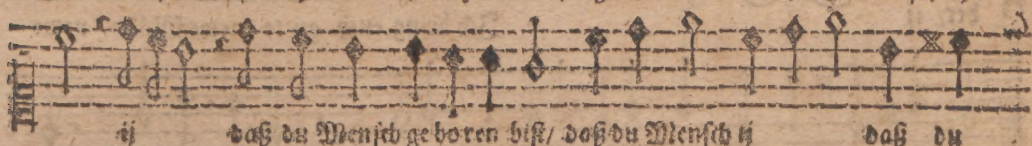 ij daß du Mensch geboren bist/ daß du Mensch ij daß du